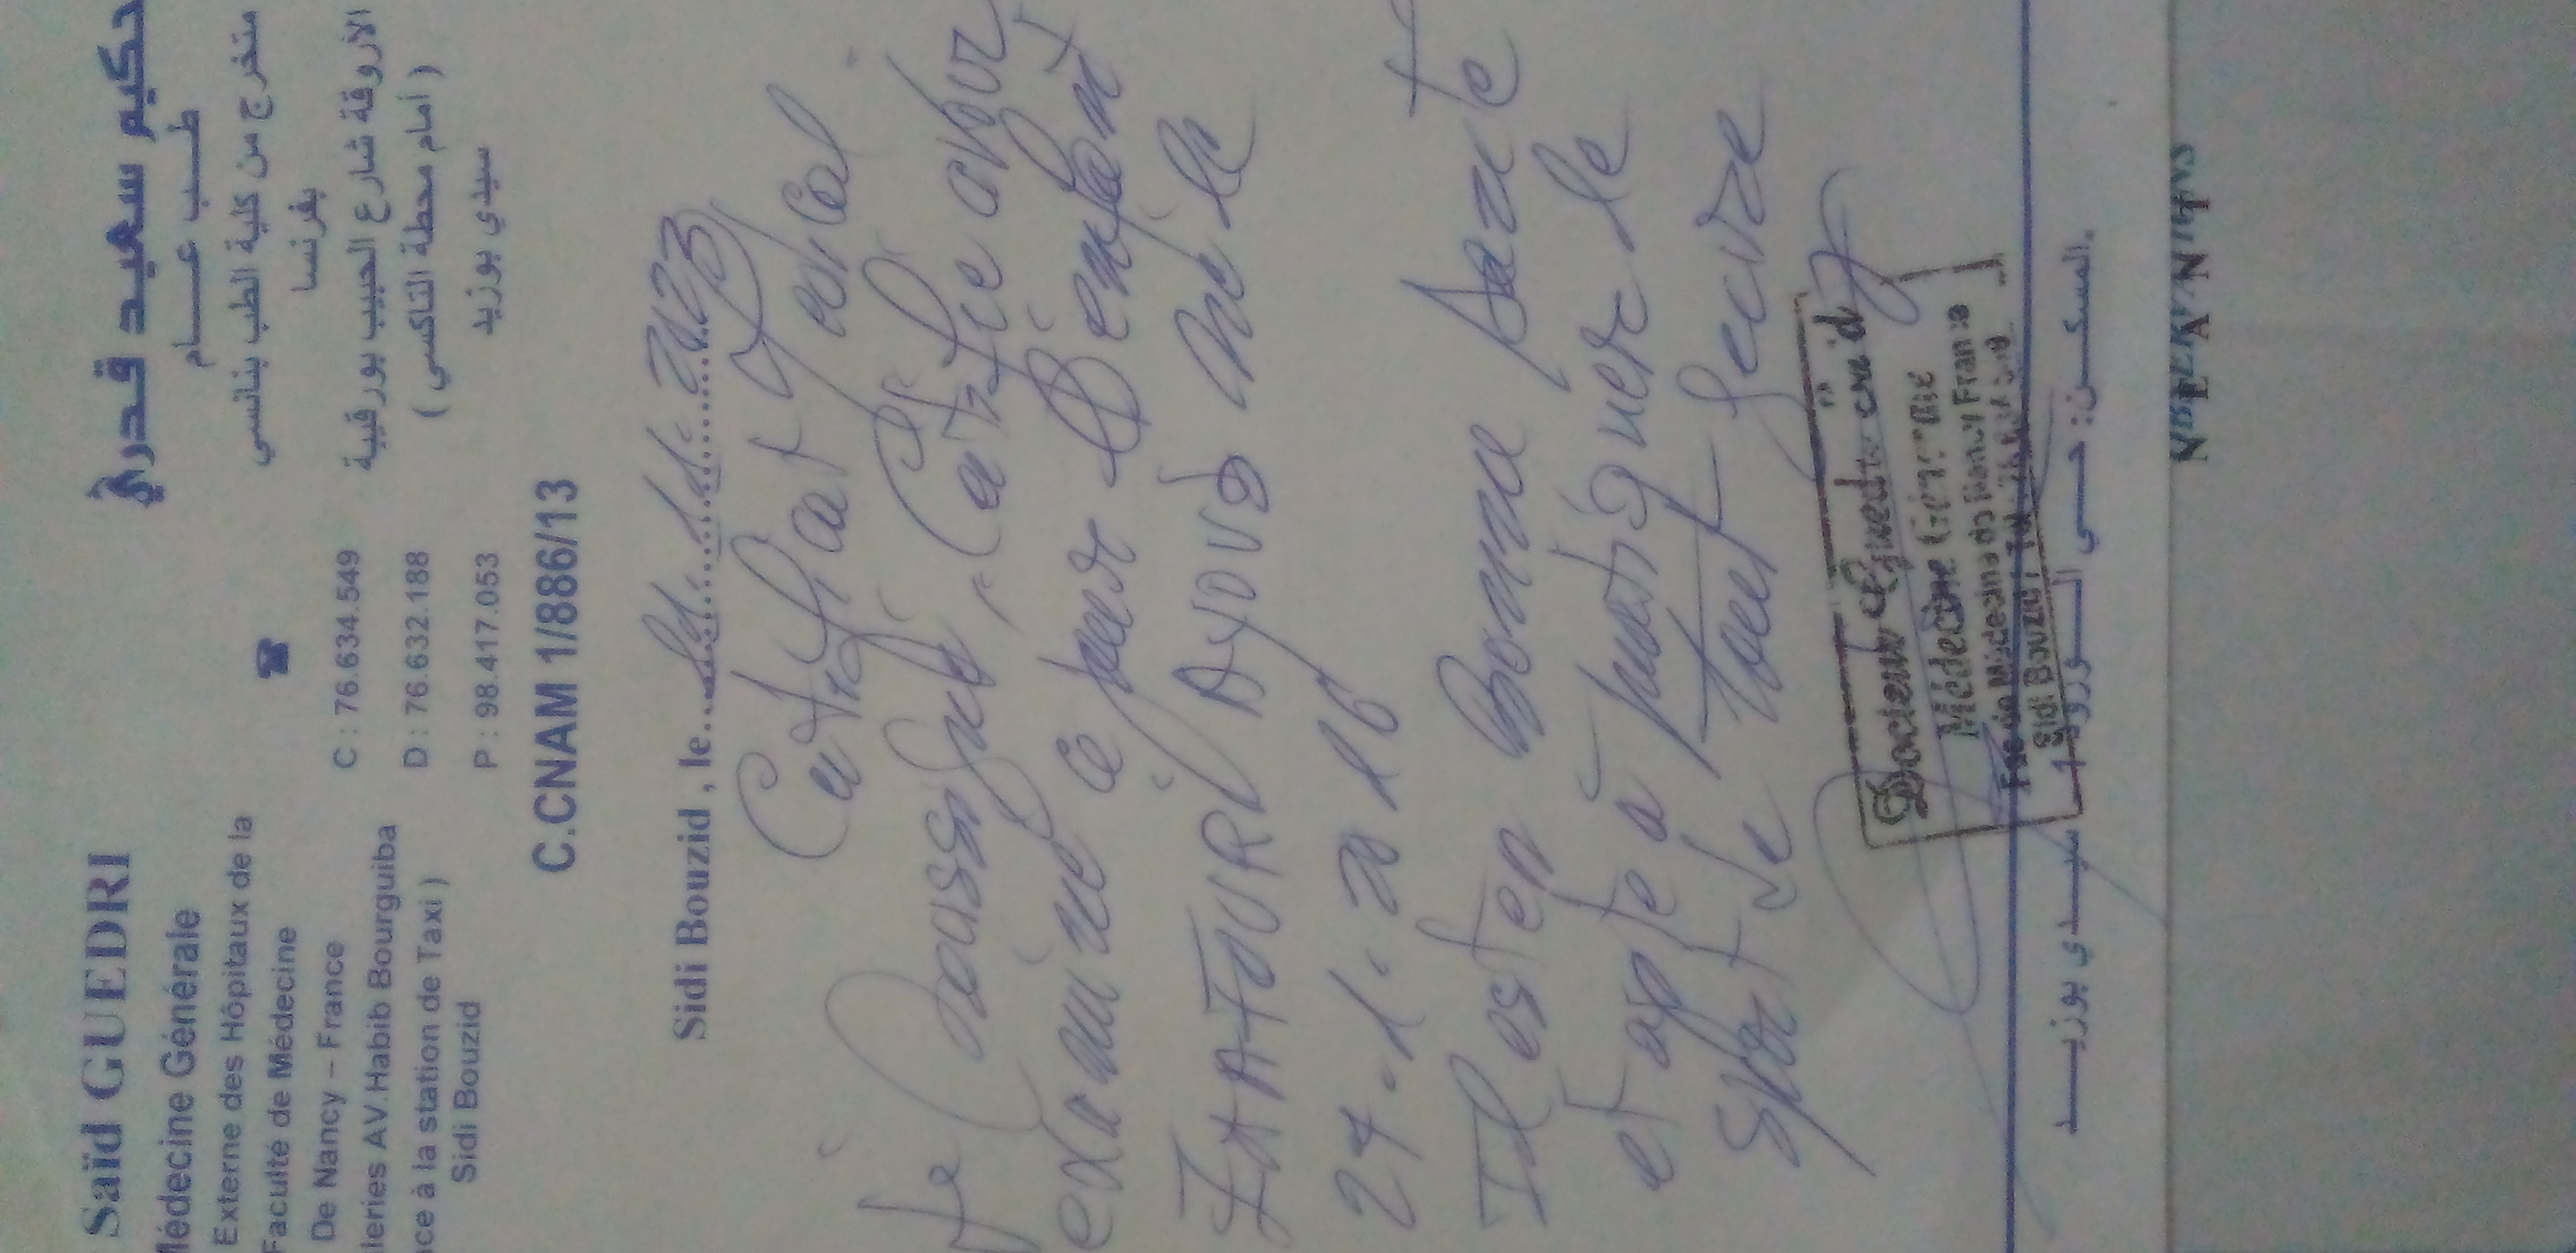 Saïd GUEDRI
Médecine Générale
Externe des Hôpitaux de la
Faculté de Médecine
De Nancy – France
leries AV.Habib Bourguiba
ce à la station de Taxi )
Sidi Bouzid
☎
C : 76.634.549
D : 76.632.188
P : 98.417.053
حكيم سعيد قدري
طب عام
متخرج من كلية الطب بنانسي
بفرنسا
الأروقة شارع الحبيب بورقيبة
( أمام محطة التاكسي )
سيدي بوزيد
C.CNAM 1/886/13
Sidi Bouzid , le 2023
Certificat Médical
Je soussigné, Certifie avoir
examiné ce jour l'enfant
AYOUB né le
24-1-2016
Il est en Bonne Santé
et apte à pratiquer le
Sport de
Docteur Guedri Said
Médecine Générale
Fac de Médecine de Nancy France
Sidi Bouzid
المسكن: حي النور 1 سيدي بوزيد